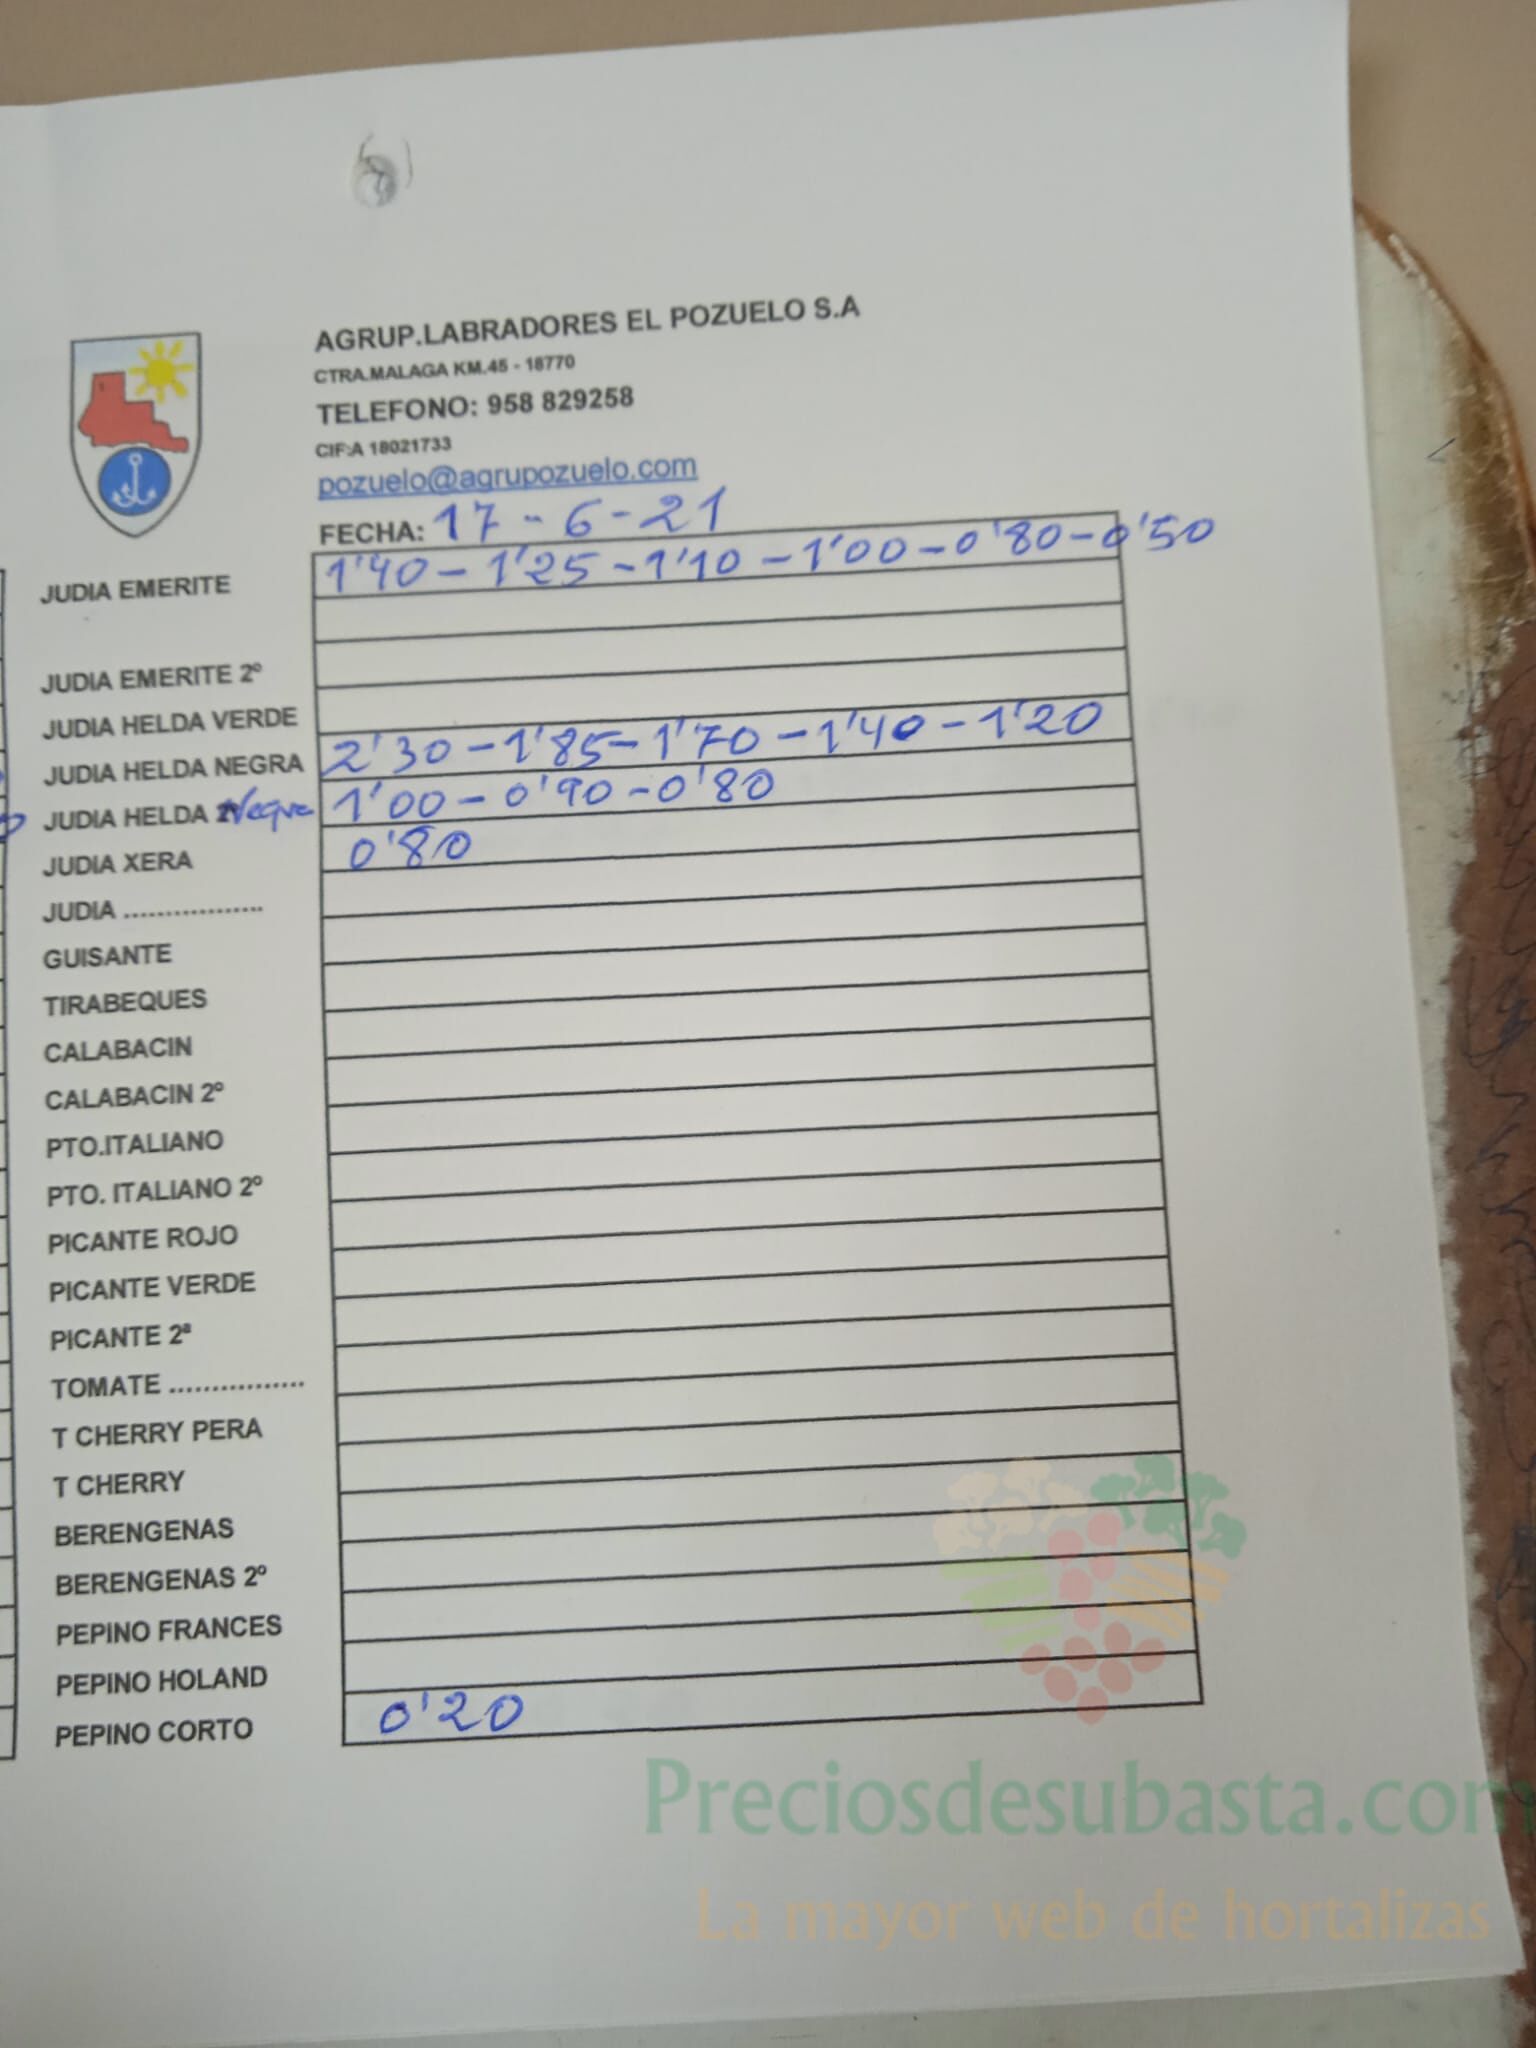 AGRUP.LABRADORES EL POZUELO S.A
CTRA.MALAGA KM.45 - 18770
TELEFONO: 958 829258
CIF:A 18021733
pozuelo@agrupozuelo.com
FECHA: 17-6-21
JUDIA EMERITE 1'40-1'25-1'10-1'00-0'80-0'50
JUDIA EMERITE 2º
JUDIA HELDA VERDE
JUDIA HELDA NEGRA 2'30-1'85-1'70-1'40-1'20
JUDIA HELDA Negra 1'00-0'90-0'80
JUDIA XERA 0'80
JUDIA .................
GUISANTE
TIRABEQUES
CALABACIN
CALABACIN 2º
PTO.ITALIANO
PTO. ITALIANO 2º
PICANTE ROJO
PICANTE VERDE
PICANTE 2ª
TOMATE ................
T CHERRY PERA
T CHERRY
BERENGENAS
BERENGENAS 2º
PEPINO FRANCES
PEPINO HOLAND
PEPINO CORTO 0'20
Preciosdesubasta.com
La mayor web de hortalizas